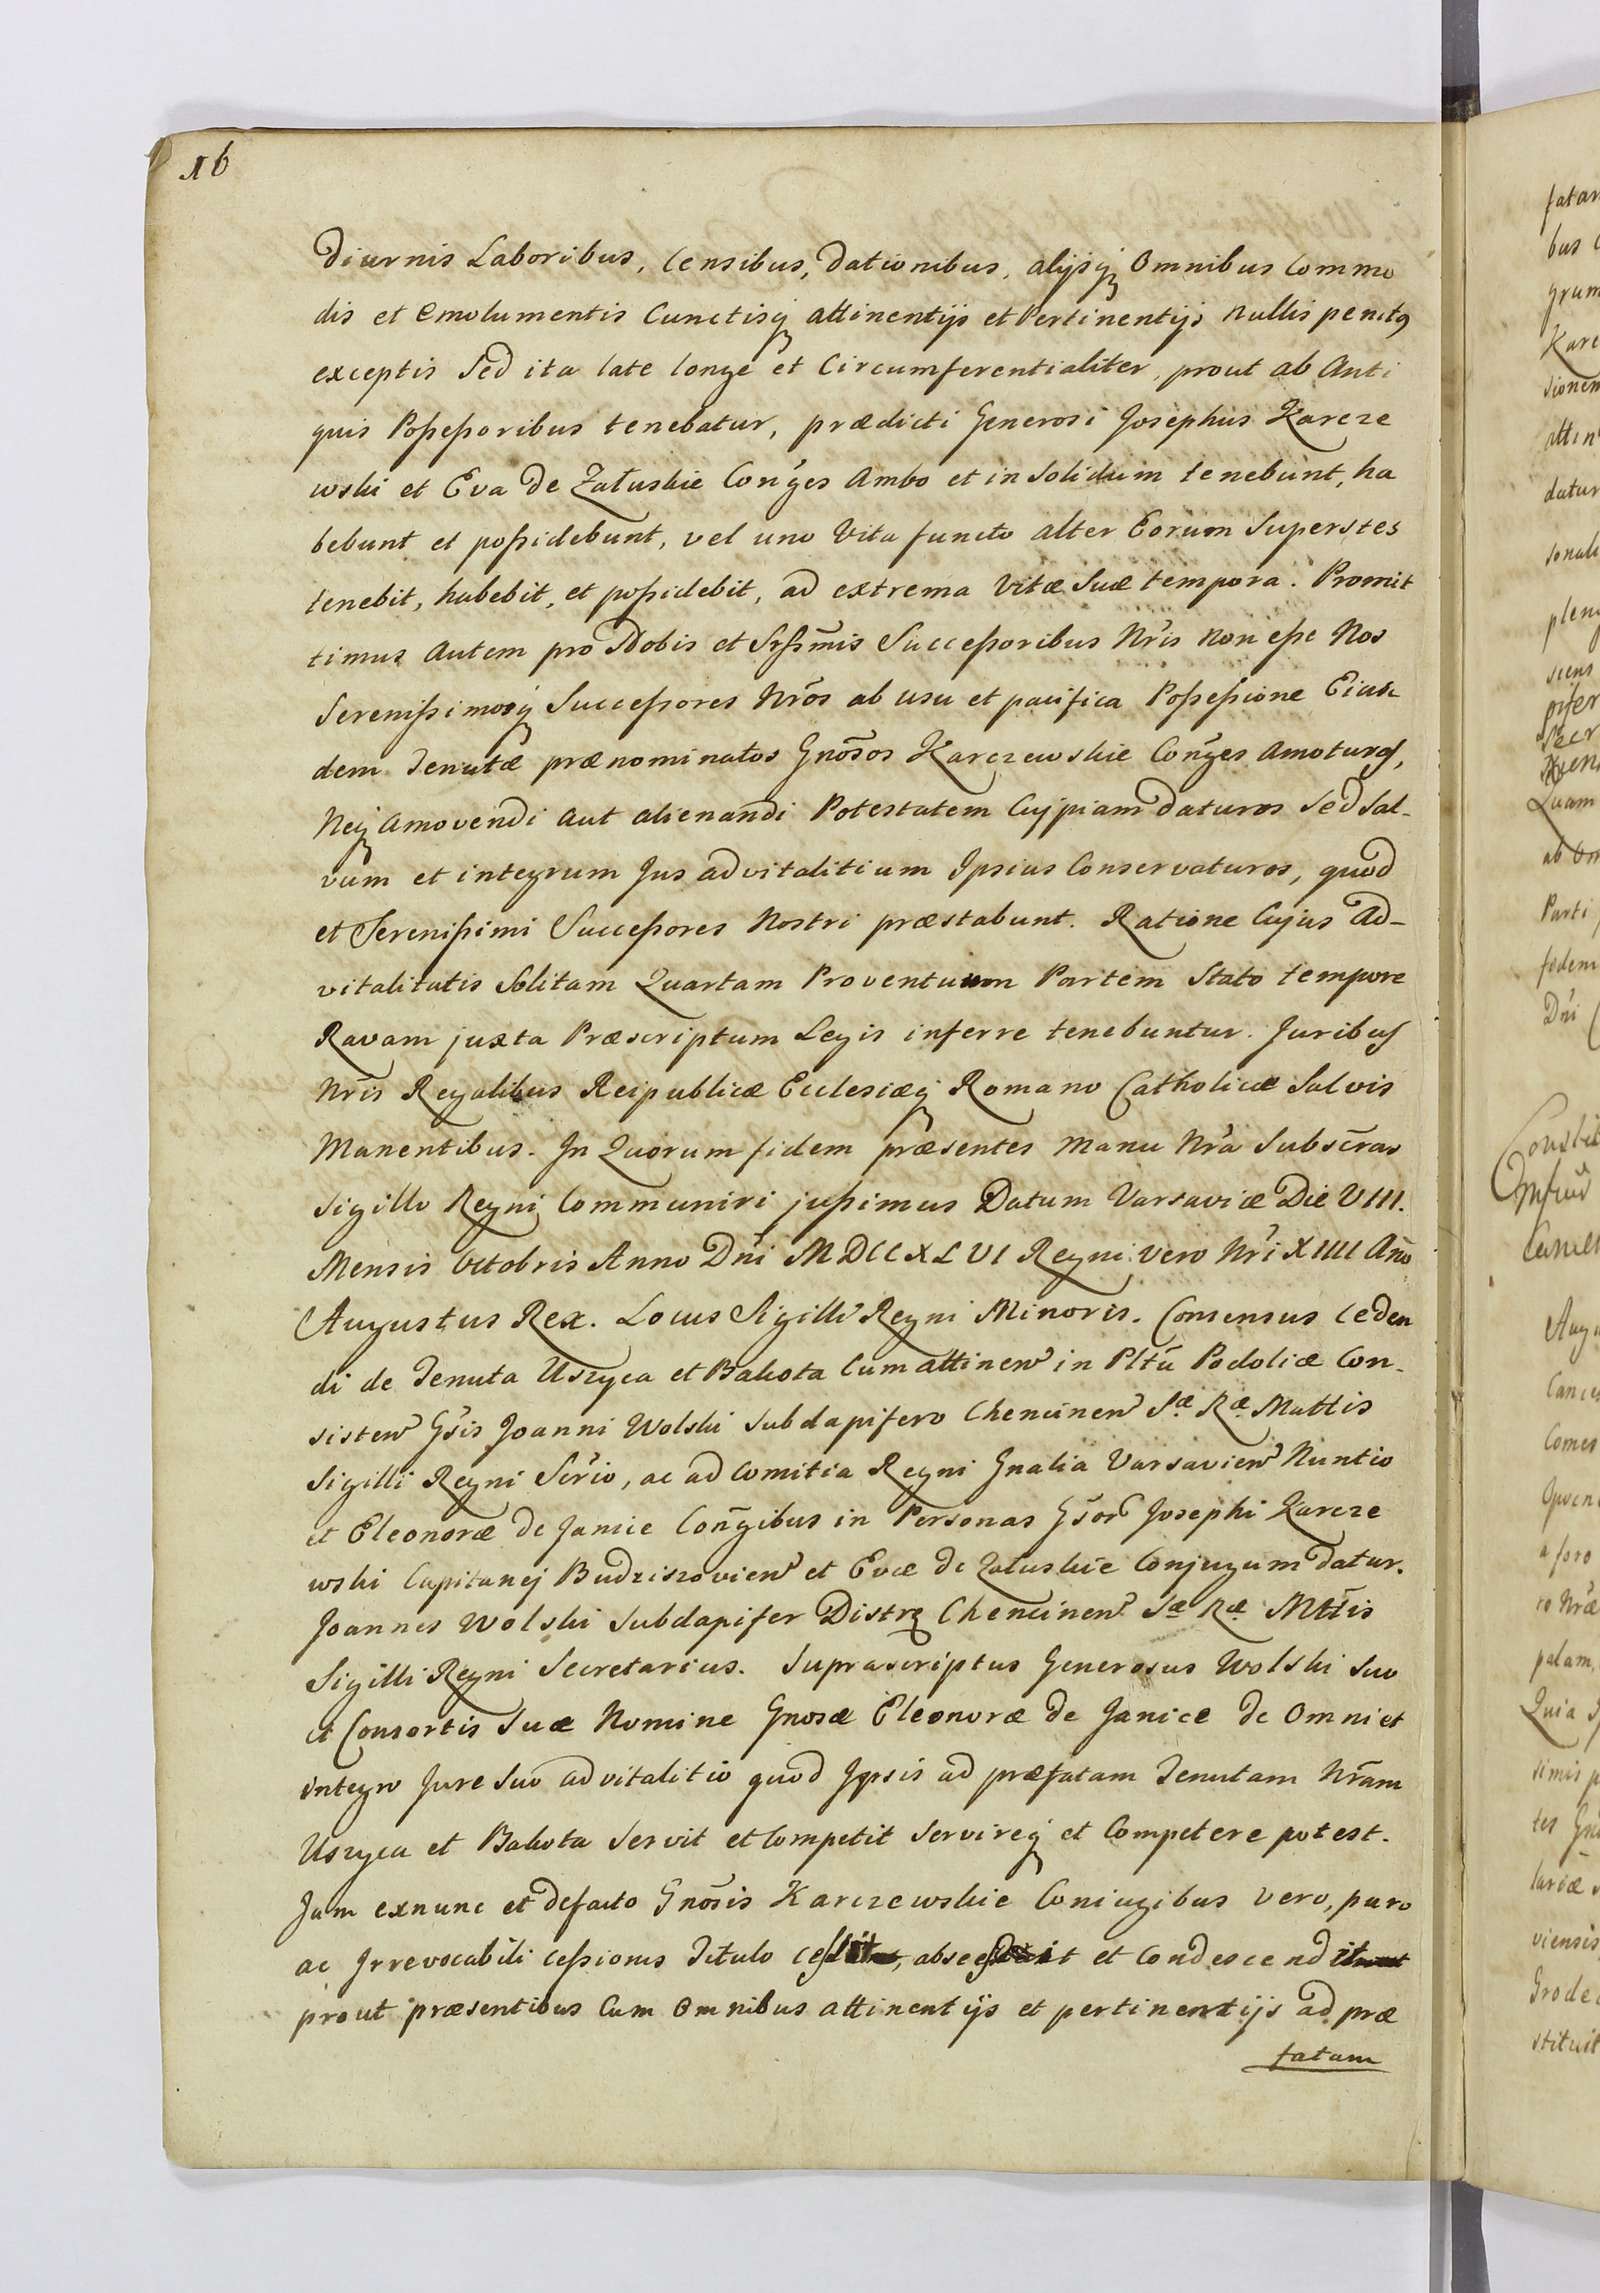 16
Diurnis Laboribus, Censibus, Dationibus, alijsq₃ Omnibus Commo
dis et Emolumentis Cunctisq₃ attinentijs et Pertinentijs nullis penitꝰ
exceptis Sed ita late longe et Circumferentialiter, prout ab Anti
quis Poßeßoribus tenebatur, prædicti Generosi Josephus Karcze
wski et Eva de Załuskie Con̄ges Ambo et in Solidum tenebunt, ha
bebunt et poßidebunt, vel uno Vita functo alter Eorum Superstes
tenebit, habebit, et poßidebit, ad extrema Vitæ Suæ tempora. Promit
timus Autem pro Nobis et Srß̄mis Succeßoribus Nr̄is Non eße Nos
Serenißimosq₃ Succeßores Nr̄os ab usu et pacifica Poßeßione Eius
dem Tenutæ prænominatos Gnōsos Karczewskie Con̄ges Amoturos,
Neq₃ Amovendi Aut alienandi Potestatem Cujpiam Daturos Sed Sal-
vum et integrum Jus advitalitium Ipsius Conservaturos, quod
et Serenißimi Succeßores Nostri præstabunt. Ratione Cujus Ad-
vitalitatis Solitam Quartam Proventuum Partem Stato tempore
Ravam juxta Præscriptum Legis inferre tenebuntur. Juribus
Nr̄is Regalibus Reipublicæ Ecclesiæq₃ Romano Catholicæ Salvis
Manentibus. In Quorum fidem præsentes Manu Nr̄a Subsc̄ras
Sigillo Regni Communiri jußimus Datum Varsaviæ Die VIII.
Mensis Octobris Anno Dn̄i MDCCXLVI Regni vero Nr̄i XIIII An̄o
Augustus Rex. Locus Sigilli Regni Minoris. Consensus Ceden
di de Tenuta Uszyca et Bakota Cum attinen̄ in Pltū Podoliæ Con-
sisten̄ Gs̄is Joanni Wolski Subdapifero Chencinen̄ Sæ Ræ Mattis
Sigilli Regni Scr̄io, ac ad Comitia Regni Gnalia Varsavien̄ Nuntio
et Eleonoræ de Janice Con̄gibus in Personas Gs̄or̄ Josephi Karcze
wski Capitanej Budziszovien̄ et Evæ de Załuskie Conjugum datur.
Joannes Wolski Subdapifer Distrꝫ Chencinen̄ Sæ Ræ Mtt̄is
Sigilli Regni Secretarius. Suprascriptus Generosus Wolski Suo
et Consortis Suæ Nomine Gnosæ Eleonoræ de Janice de Omni et
integro Jure Suo advitalitio quod Ipsis ad præfatam Tenutam Nr̄am
Uszyca et Bakota Servit et Competit Servireq₃ et Competere potest.
Jam exnunc et defacto Gnōsis Karczewskie Coniugibus Vero, puro
ac Irrevocabili ceßionis Titulo ceßit, absceßit et Condescendit
prout præsentibus Cum Omnibus attinentijs et pertinentijs ad præ
fatam